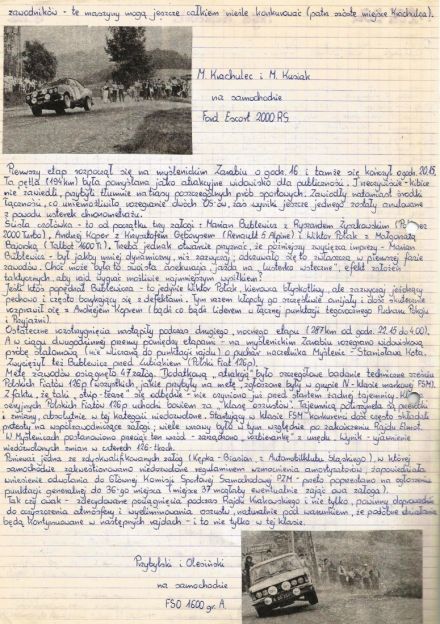 zawodników - te maszyny mogą jeszcze całkiem nieźle konkurować (patrz szóste miejsce Krachulca).
M. Krachulec i M. Kusiak
na samochodzie
Ford Escort 2000 RS
Pierwszy etap rozpoczął się na myślenickim Zarabiu o godz. 16 i tamże się kończył o godz. 20.15.
Ta pętla (194km) była pomyślana jako atrakcyjne widowisko dla publiczności. I rzeczywiście - kibice
nie zawiedli, przybyli tłumnie na trasy poszczególnych prób sportowych. Zawiodły natomiast środki
łączności, co uniemożliwiło rozegranie dwóch OS-ów, zaś wyniki jeszcze jednego zostały anulowane
z powodu usterek chronometrażu.
Ścisła czołówka - to od początku trzy załogi: Marian Bublewicz z Ryszardem Żyszkowskim
2000 Turbo), Andrzej Koper z Krzysztofem Gębarysem (Renault 5 Alpine) i Wiktor Polak z Małgorzatą
Bajorską (Talbot 1600 Ti). Trzeba jednak otwarcie przyznać, że późniejszy zwycięzca imprezy - Marian
Bublewicz - był jakby mniej dynamiczny, niż zazwyczaj; odczuwało się to zwłaszcza w pierwszej fazie
zawodów. Choć może była to swoista asekuracja, „jazda na lusterko wsteczne”, efekt założeń
taktycznych, aby rajd wygrać możliwie najmniejszym wysiłkiem?
Jeśli ktoś popędzał Bublewicza - to jedynie Wiktor Polak, kierowca błyskotliwy, ale zazwyczaj jeżdżący
pechowo i często borykający się z defektami. Tym razem kłopoty go szczęśliwie ominęły i dość skutecznie
rozprawił się z Andrzejem Koprem (bądź co bądź liderem w łącznej punktacji tegorocznego Pucharu Pokoju
i Przyjaźni).
Ostateczne rozstrzygnięcia nastąpiły podczas drugiego, nocnego etapu (287km od godz. 22.45 do 4.00).
A w ciągu dwugodzinnej przerwy pomiędzy etapami - na myślenickim Zarabiu rozegrano widowiskową
próbę stalomową (nie wliczaną do punktacji rajdu) o puchar naczelnika Myślenic - Stanisława Kota.
Zwyciężył też Bublewicz przed (Polski Fiat 126p).
Metę zawodów osiągnęło 47 załóg. Dodatkową „atrakcją” było szczegółowe badanie techniczne sześciu
Polskich Fiatów 126p (wszystkich, jakie przybyły na metę, zgłoszone były w grupie N - klasie markowej FSM).
Z faktu, że taki „strip-tease” się odbędzie - nie czyniono już przed startem żadnej tajemnicy. Kl
seryjnych Polskich Fiatów 126p uchodzi bowiem za „klasę oszustów”. Tajemnicą poliszynela są przeróbki
i zmiany, absolutnie w tej kategorii niedozwolone. Startujący w klasie „FSM” konkurenci dość często składali
protesty na współzawodniczące załogi; wiele wrzawy było w tym względzie po zakończeniu Rajdu Dmot.
W Myślenicach postanowiono przeciąć ten wrzód - zarządzono „rozbierankę” z urzędu. Wynik - ujawnienie
niedozwolonych zmian w czterech 126-tkach.
Ponieważ jedna ze zdyskwalifikowanych załóg (Kępka - Biasian z Automobilklubu Śląskiego), w której
samochodzie zakwestionowano niedozwolone regulaminem wzmocnienia amortyzatorów, zapowiedziała
wniesienie odwołania do Głównej Komisji Sportowej Samochodowej PZM - przeto poprzestano na ogłoszeniu
punktacji generalnej do 36-go miejsca (miejsce 37 mogłaby ewentualnie zająć owa załoga).
Tak czy owak - zdecydowane posunięcia podczas Rajdu Krakowskiego i nie tylko, powinny doprowadzić
do oczyszczenia atmosfery i wyeliminowania oszustw, naturalnie pod warunkiem, że podobne działania
będą kontynuowane w następnych rajdach - i to nie tylko w tej klasie.
Przybylski i Olesiński
na samochodzie
FSO 1600 gr. A.